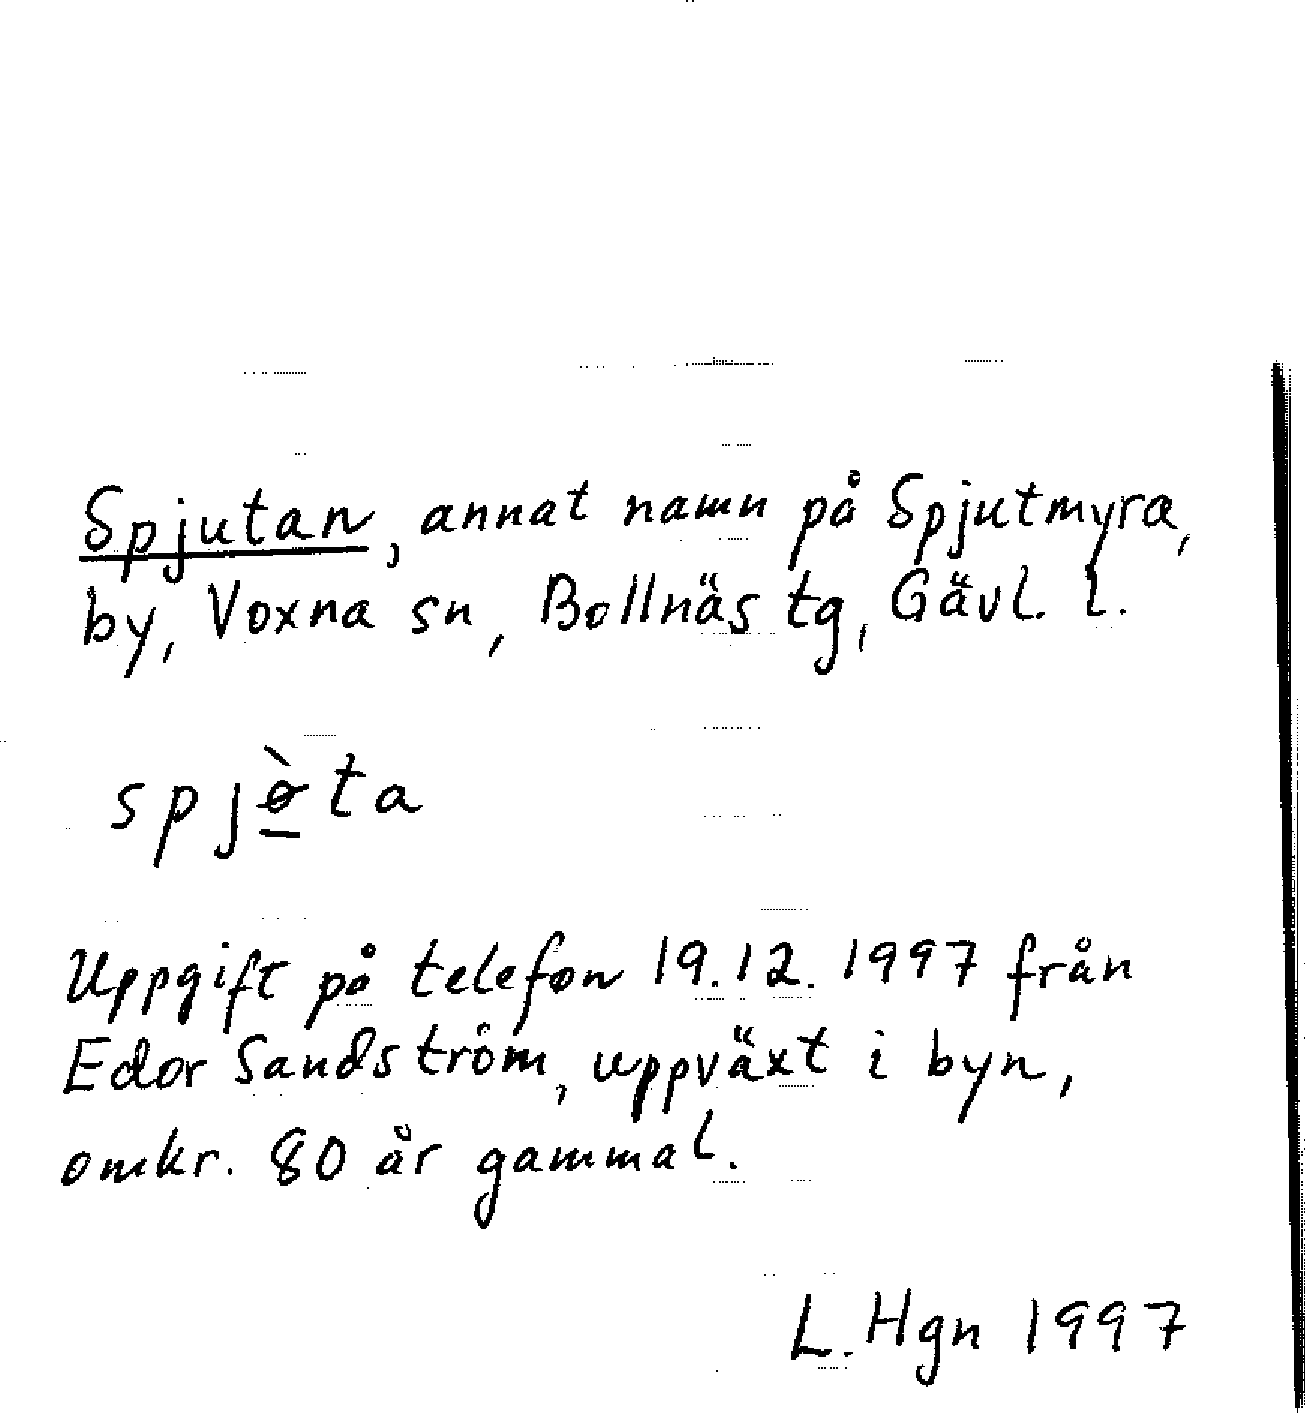 Spjutan, annat namn på Spjutmyra,
by, Voxna sn, Bollnäs tg, Gävl. l.
spjɵ̠̀ta
Uppgift på telefon 19.12.1997 från
Edor Sandström, uppväxt i byn,
omkr. 80 år gammal.
L. Hgn 1997